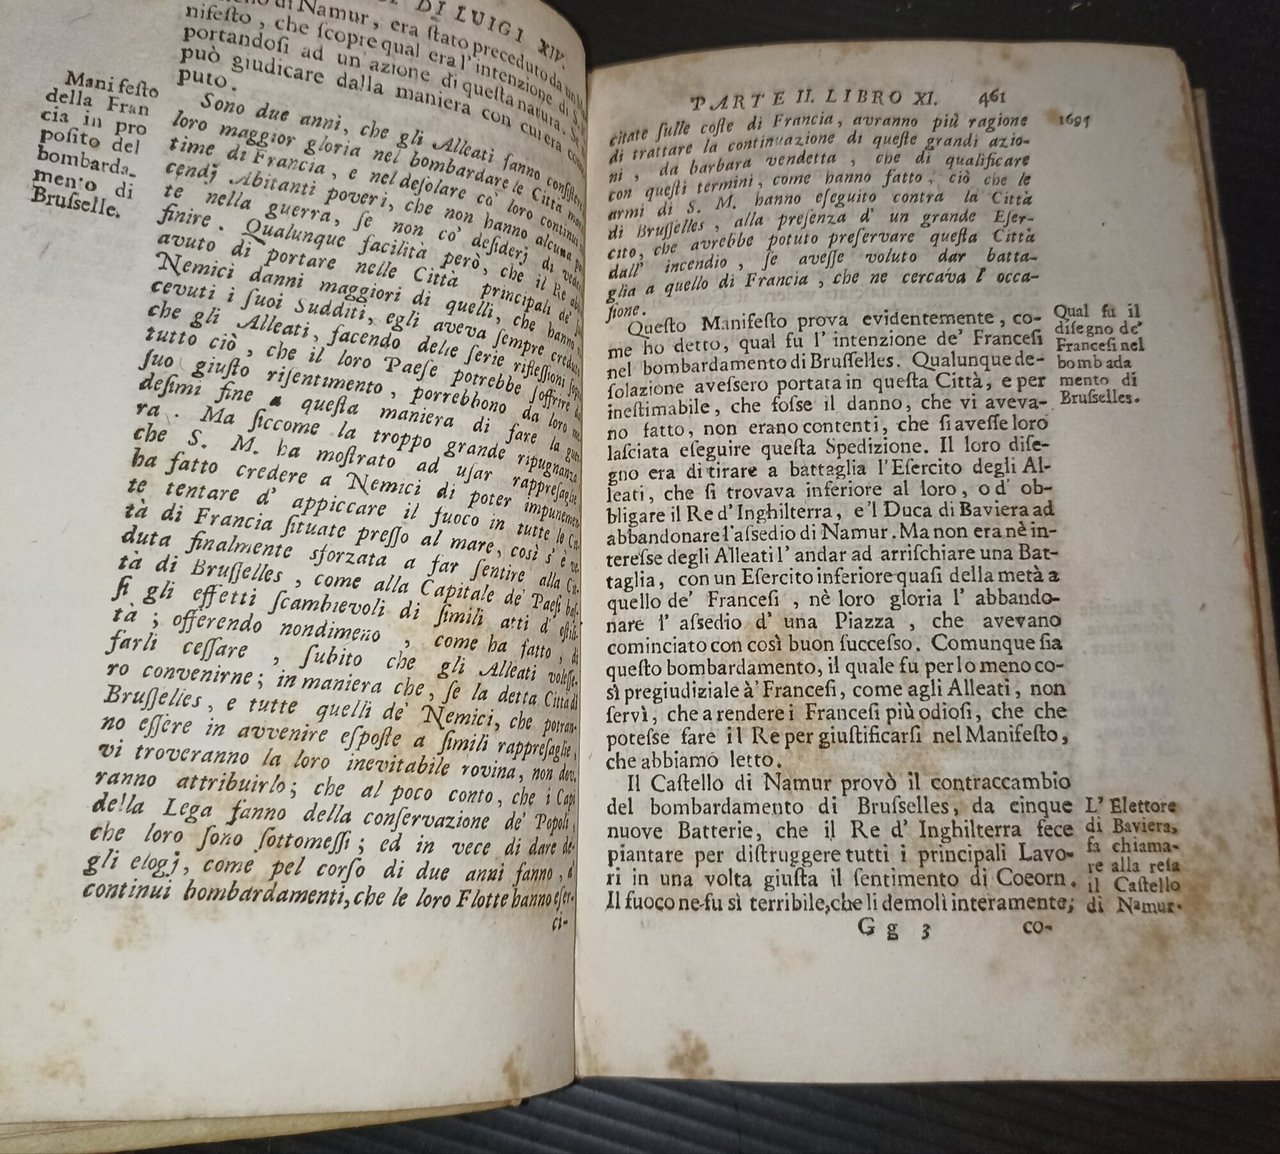 DI LUIGI XIV.
di Namur, era ſtato preceduto da un Ma-
nifeſto, che ſcopre qual era l'intenzione di S.
portandoſi ad un'azione di queſta natura. Se
può giudicare dalla maniera con cui era com-
puto.
Mani feſto
della Fran
cia in pro
poſito del
bombarda-
mento di
Bruſſelle.
Sono due anni, che gli Alleati fanno conſiſtere
loro maggior gloria nel bombardare le Città marit-
time di Francia, e nel deſolare co' loro continui
cendj Abitanti poveri, che non hanno alcuna par-
te nella guerra, ſe non co' deſiderj di vederla
finire. Qualunque facilità però, che il Re abbia
avuto di portare nelle Città principali de' ſuoi
Nemici danni maggiori di quelli, che hanno ri-
cevuti i ſuoi Sudditi, egli aveva ſempre creduto
che gli Alleati, facendo delle ſerie rifleſſioni ſopra
tutto ciò, che il loro Paeſe potrebbe ſoffrire dal
ſuo giuſto riſentimento, porrebbono da loro me-
deſimi fine a queſta maniera di fare la guer-
ra. Ma ſiccome la troppo grande ripugnanza
che S. M. ha moſtrato ad uſar rappreſaglie
ha fatto credere a Nemici di poter impunemen-
te tentare d' appiccare il fuoco in tutte le Cit-
tà di Francia ſituate preſſo al mare, così s'è ve-
duta finalmente sforzata a far ſentire alla Cit-
tà di Bruſſelles, come alla Capitale de' Paeſi baſ-
ſi gli effetti ſcambievoli di ſimili atti d' oſtili-
tà; offerendo nondimeno, come ha fatto, di
farli ceſſare, ſubito che gli Alleati voleſſe-
ro convenirne; in maniera che, ſe la detta Città di
Bruſſelles, e tutte quelli de' Nemici, che potran-
no eſſere in avvenire eſpoſte a ſimili rappreſaglie,
vi troveranno la loro inevitabile rovina, non dov-
ranno attribuirlo; che al poco conto, che i Capi
della Lega fanno della conſervazione de' Popoli,
che loro ſono ſottomeſſi; ed in vece di dare de-
gli elogj, come pel corſo di due anni fanno, a
continui bombardamenti, che le loro Flotte hanno eſer-
ci-
PARTE II. LIBRO XI. 461
1695
citate ſulle coſte di Francia, avranno più ragione
di trattare la continuazione di queſte grandi azio-
ni, da barbara vendetta, che di qualificare
con queſti termini, come hanno fatto, ciò che le
armi di S. M. hanno eſeguito contra la Città
di Bruſſelles, alla preſenza d' un grande Eſer-
cito, che avrebbe potuto preſervare queſta Città
dall' incendio, ſe aveſſe voluto dar batta-
glia a quello di Francia, che ne cercava l' occa-
ſione.
Queſto Manifeſto prova evidentemente, co-
me ho detto, qual fu l' intenzione de' Franceſi
nel bombardamento di Bruſſelles. Qualunque de-
ſolazione aveſſero portata in queſta Città, e per
ineſtimabile, che foſſe il danno, che vi aveva-
no fatto, non erano contenti, che ſi aveſſe loro
laſciata eſeguire queſta Spedizione. Il loro diſe-
gno era di tirare a battaglia l'Eſercito degli Al-
leati, che ſi trovava inferiore al loro, o d' ob-
bligare il Re d'Inghilterra, e'l Duca di Baviera ad
abbandonare l'aſſedio di Namur. Ma non era nè in-
tereſſe degli Alleati l' andar ad arriſchiare una Bat-
taglia, con un Eſercito inferiore quaſi della metà a
quello de' Franceſi, nè loro gloria l' abbando-
nare l' aſſedio d' una Piazza, che avevano
cominciato con così buon ſucceſſo. Comunque ſia
queſto bombardamento, il quale fu per lo meno co-
sì pregiudiziale à' Franceſi, come agli Alleati, non
ſervì, che a rendere i Franceſi più odioſi, che che
poteſſe fare il Re per giuſtificarſi nel Manifeſto,
che abbiamo letto.
Qual fu il
diſegno de'
Franceſi nel
bombada
mento di
Bruſſelles.
Il Caſtello di Namur provò il contraccambio
del bombardamento di Bruſſelles, da cinque
nuove Batterie, che il Re d' Inghilterra fece
piantare per diſtruggere tutti i principali Lavo-
ri in una volta giuſta il ſentimento di Coeorn.
Il fuoco ne fu sì terribile, che li demolì interamente;
L' Elettore
di Baviera,
fa chiama-
re alla reſa
il Caſtello
di Namur.
G g 3 co-